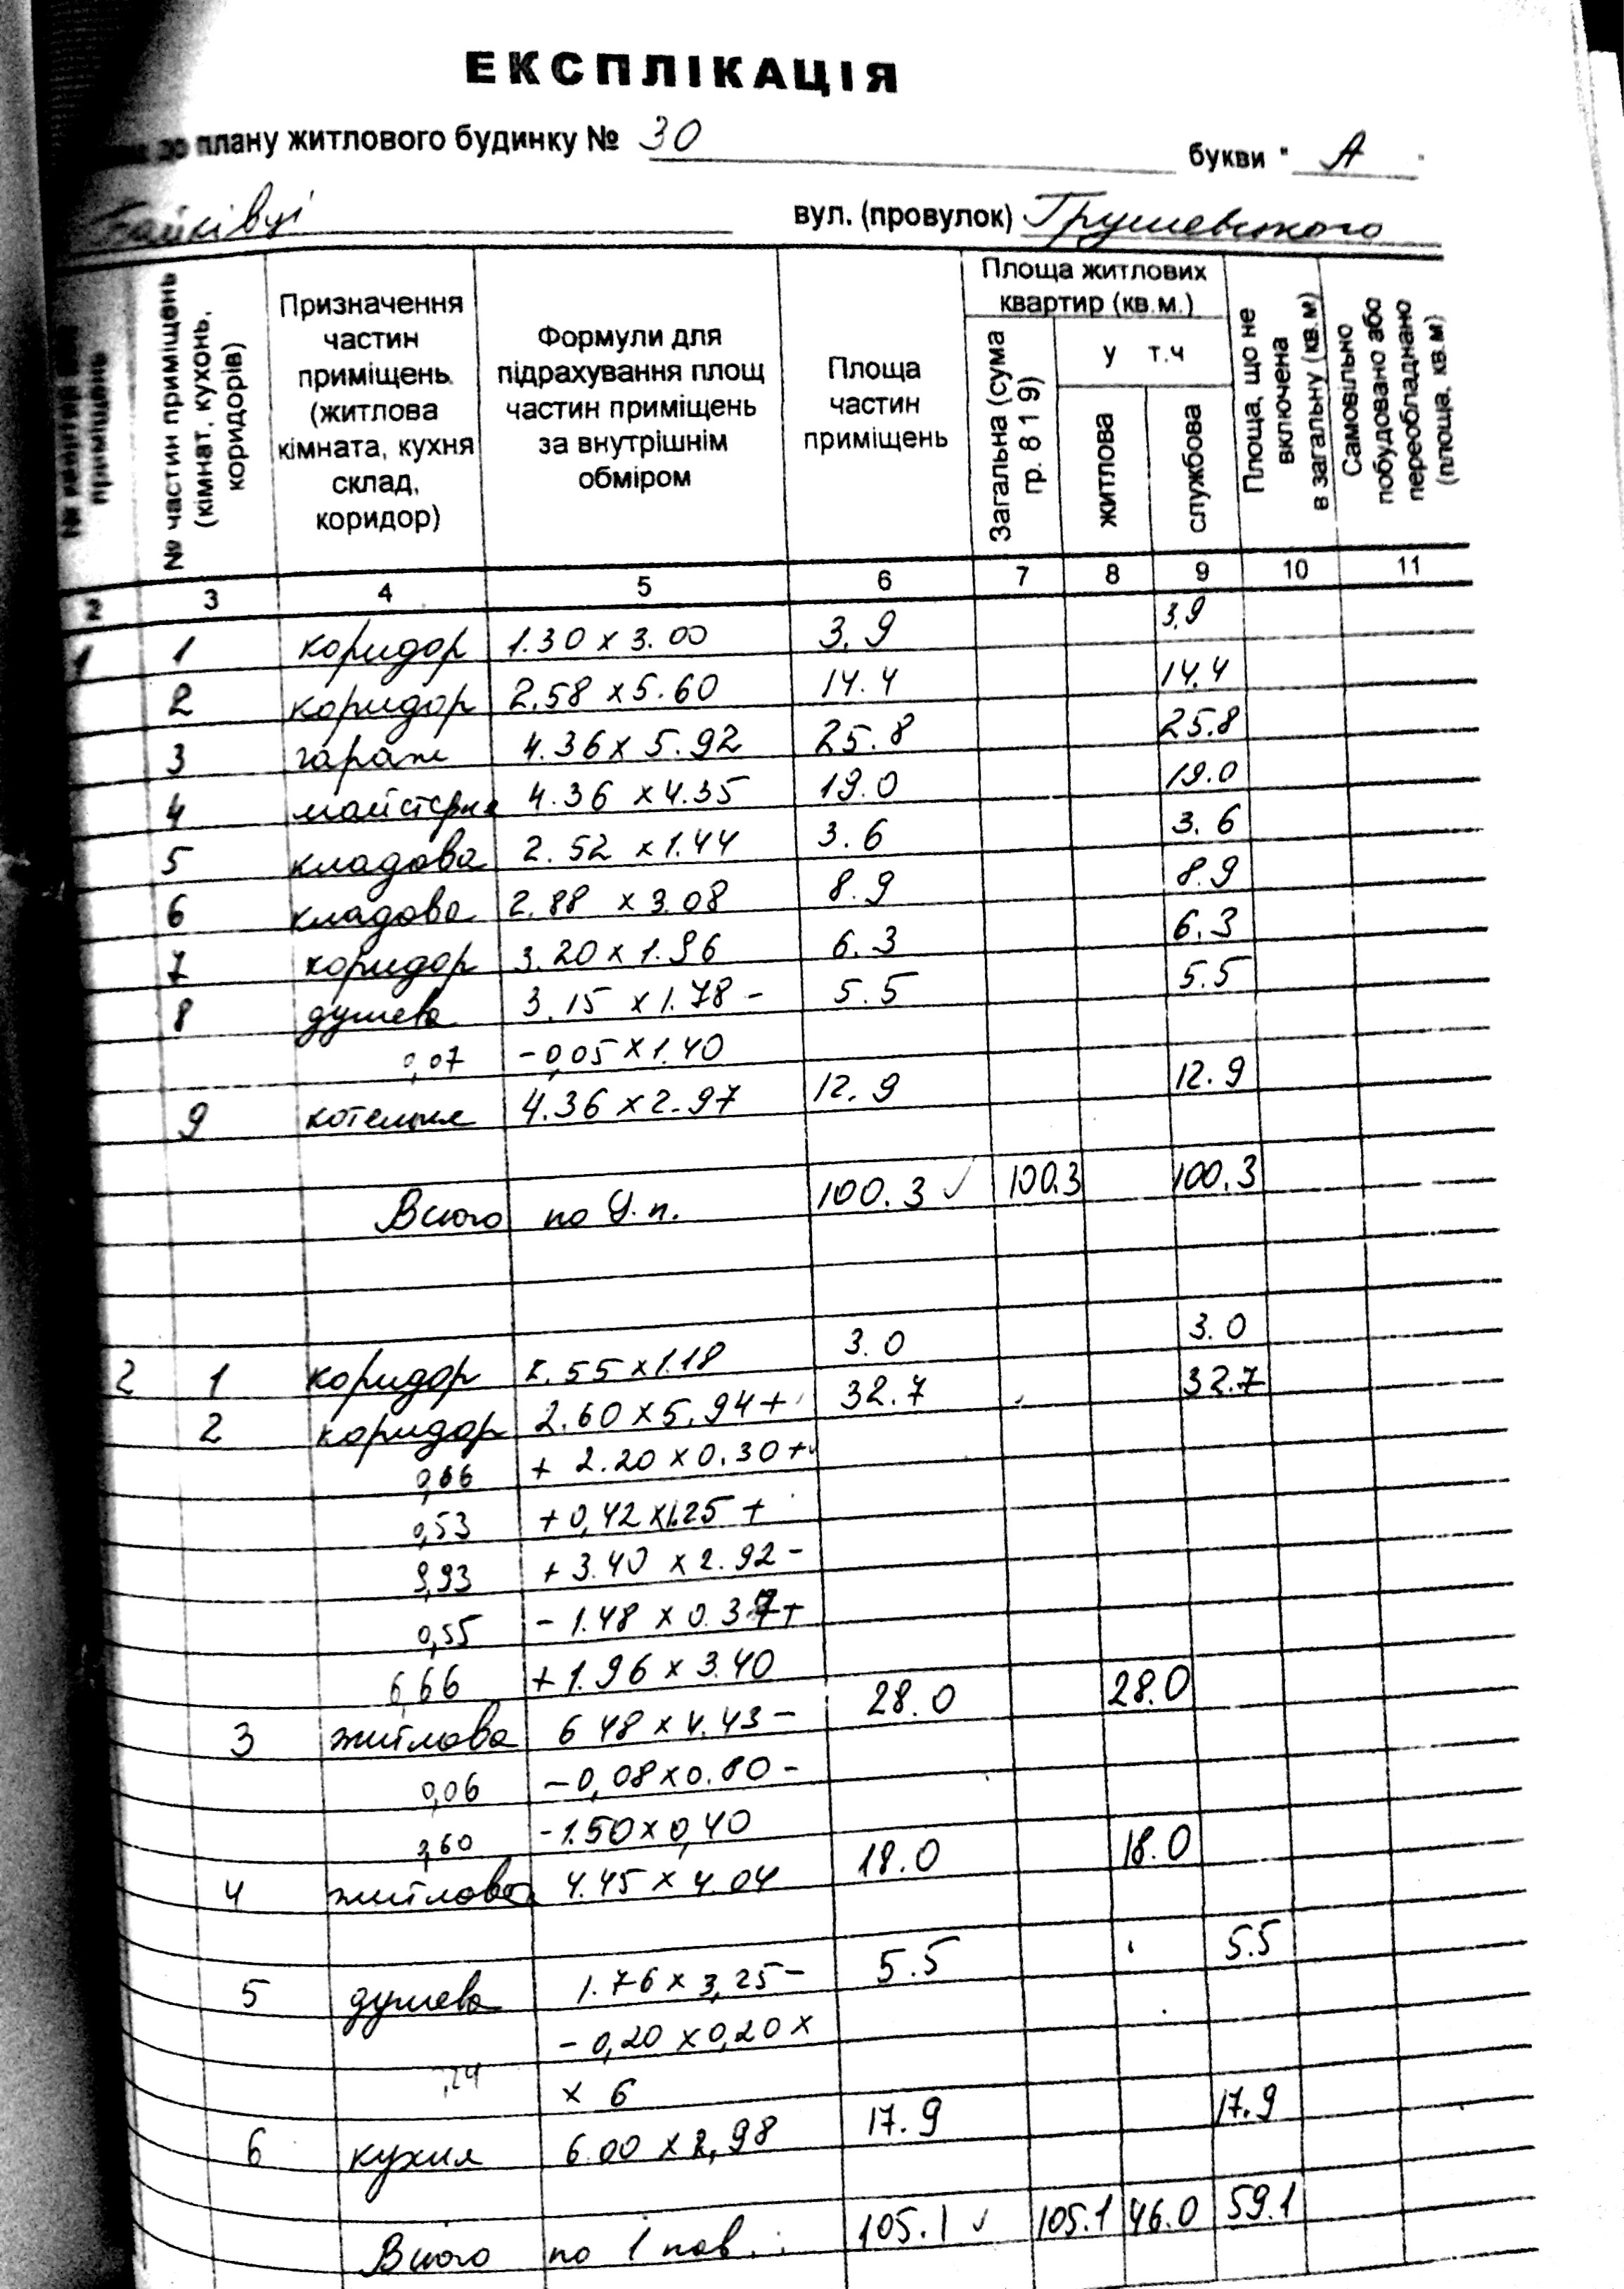 ЕКСПЛІКАЦІЯ
до плану житлового будинку № 30 букви " А "
Байківці вул. (провулок) Грушевського
приміщень
№ частин приміщень (кімнат, кухонь, коридорів)
Призначення частин приміщень (житлова кімната, кухня склад, коридор)
Формули для підрахування площ частин приміщень за внутрішнім обміром
Площа частин приміщень
Площа житлових квартир (кв.м.)
Загальна (сума гр. 8 1 9)
у т.ч
житлова
службова
Площа, що не включена в загальну (кв.м)
Самовільно побудовано або переобладнано (площа, кв.м)
2 3 4 5 6 7 8 9 10 11
1 1 коридор 1.30 x 3.00 3.9 3.9
2 коридор 2.58 x 5.60 14.4 14.4
3 гараж 4.36 x 5.92 25.8 25.8
4 майстерня 4.36 x 4.35 19.0 19.0
5 кладова 2.52 x 1.44 3.6 3.6
6 кладова 2.88 x 3.08 8.9 8.9
7 коридор 3.20 x 1.96 6.3 6.3
8 душева 3.15 x 1.78 - 5.5 5.5
0,07 - 0,05 x 1.40
9 котельня 4.36 x 2.97 12.9 12.9
Всього по Ц.п. 100.3 ✓ 100.3 100.3
2 1 коридор 2.55 x 1.18 3.0 3.0
2 коридор 2.60 x 5.94 + 32.7 32.7
0,66 + 2.20 x 0.30 +
0,53 + 0,42 x 1.25 +
9,93 + 3.40 x 2.92 -
0,55 - 1.48 x 0.37 +
6,66 + 1.96 x 3.40
3 житлова 6 48 x 4.43 - 28.0 28.0
0,06 - 0,08 x 0.80 -
0,60 - 1.50 x 0,40
4 житлова 4.45 x 4.04 18.0 18.0
5 душева 1.76 x 3,25 - 5.5 5.5
- 0,20 x 0,20 x
,24 x 6
6 кухня 6.00 x 2,98 17.9 17.9
Всього по 1 пов. 105.1 ✓ 105.1 46.0 59.1